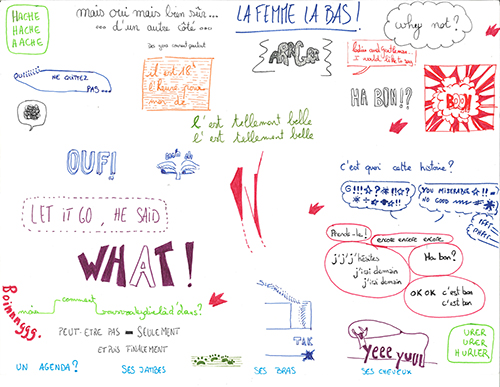 HACHE
HACHE
AACHE
mais oui mais bien sûr...
... d'un autre côté ...
LA FEMME LA BAS!
why not?
NE QUITEZ
PAS...
il est 18h
l'heure pour
moi de
ARRGH
ladies and gentlemen
i would like to say
HA BON!?
BOO!
l'est tellement belle
l'est tellement belle
OUF!
c'est quoi cette histoire?
G!!!☆?*!!☆?
YOU MISERABLE ☆!!
NO GOOD
LET IT GO, HE SAID
N
Prends-le!
encore encore encore
j'j'j'hésites
j'ici demain
j'ici demain
Ha bon?
OK OK c'est bon
c'est bon
WHAT!
Boinnnggg.
mais
comment
PEUT-ETRE PAS - SEULEMENT
ET PUIS FINALEMENT
TAK
yeee yuuu
URER
URER
HURLER
UN AGENDA?
SES JAMBES
SES BRAS
SES CHEVEUX